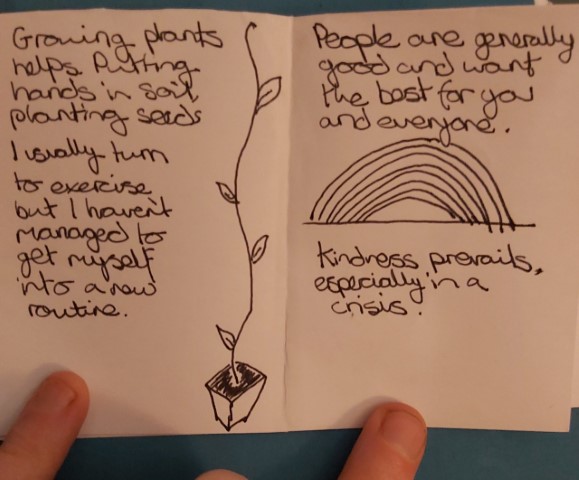 Growing plants
helps. Putting
hands in soil,
planting seeds
I usually turn
to exercise
but I haven't
managed to
get myself
into a new
routine.
People are generally
good and want
the best for you
and everyone.
Kindness prevails,
especially in a
crisis.